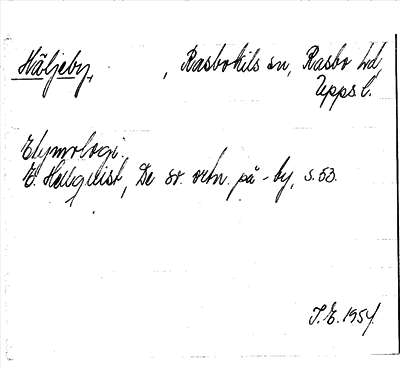 Häljeby, , Rasbokils sn, Rasbo hd,
Upps l.
Etymologi.
E. Hellquist, De sv. ortn. på -by, s. 53.
I.E. 1954.